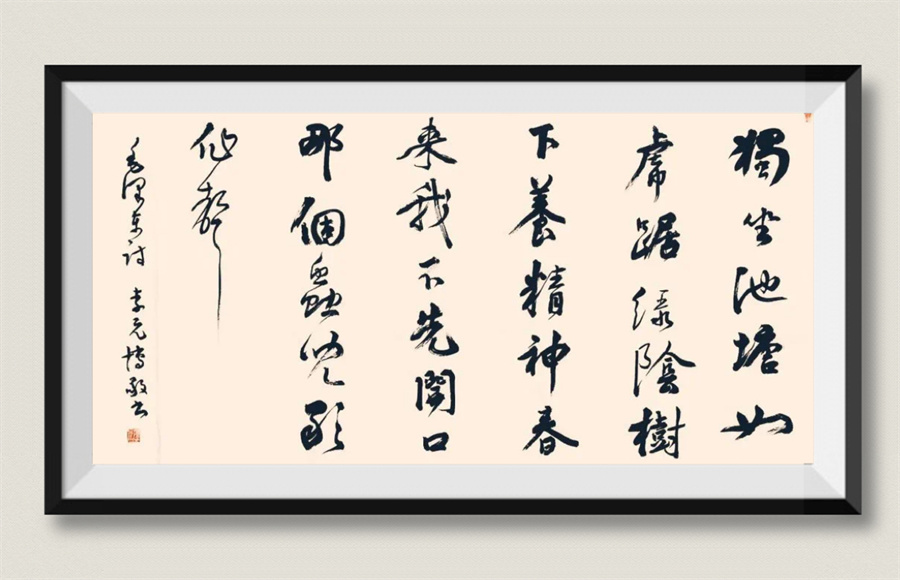 獨坐池塘如
虎踞綠陰樹
下養精神春
来我不先開口
那個蟲兒敢
作聲
毛澤東詩 李元博敬書